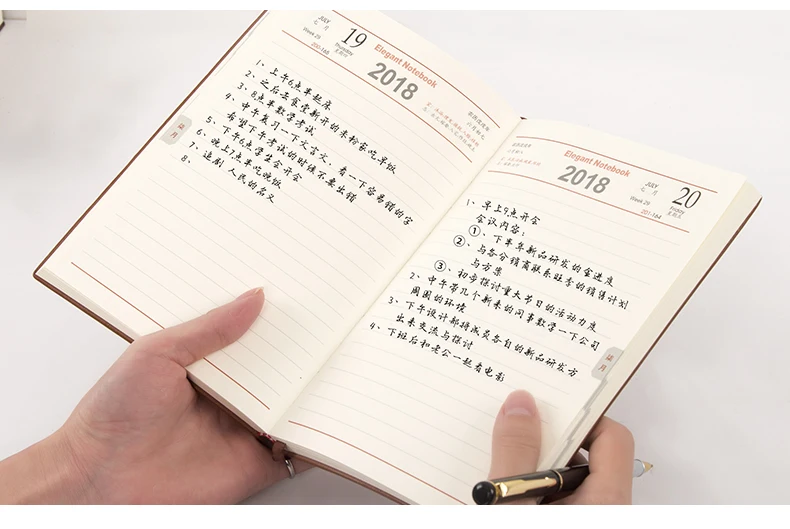 JULY
七月
19
Thursday
星期四
Week 29
200-165
Elegant Notebook
2018
1、上午6点半起床
2、之后去食堂新开的米粉家吃早饭
3、8点半数学考试
4、中午复习一下文言文，看一下容易错的字
希望下午考试的时候不要出错
5、下午6点学生会开会
6、晚上7点半吃晚饭
7、追剧 人民的名义
8、
柒月
Elegant Notebook
2018
JULY
七月
20
Friday
星期五
Week 29
201-164
1、早上9点开会
会议内容：
①、下半年新品研发的金进度
②、与各分销商联系旺季的销售计划
与方案
③、初步探讨重大节日的活动力度
2、中午带几个新来的同事数学一下公司
周围的环境
3、下午设计部将成员各自的新品研发方
出来交流与探讨
4、下班后和老公一起看电影
柒月